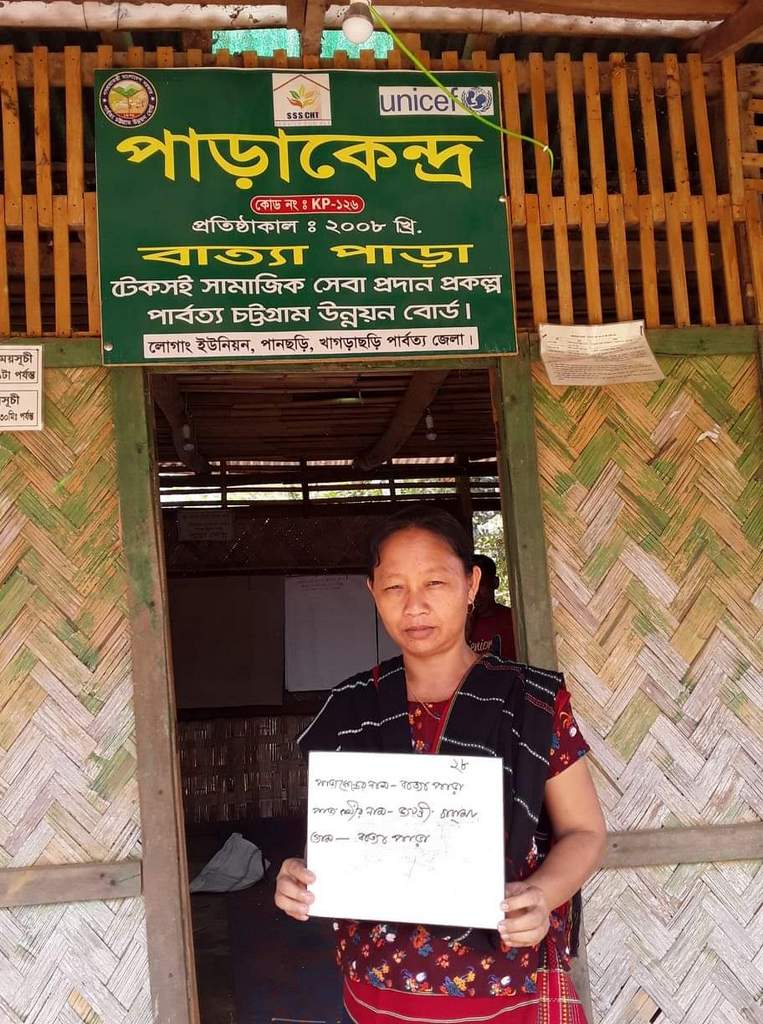 SSS CHT
unicef
পাড়াকেন্দ্র
কোড নং : KP-১২৬
প্রতিষ্ঠাকাল : ২০০৮ খ্রি.
বাত্যা পাড়া
টেকসই সামাজিক সেবা প্রদান প্রকল্প
পার্বত্য চট্টগ্রাম উন্নয়ন বোর্ড।
লোগাং ইউনিয়ন, পানছড়ি, খাগড়াছড়ি পার্বত্য জেলা।
ময়সূচী
টা পর্যন্ত
সূচী
৩০মিঃ পর্যন্ত
Senior
২৮
পাড়াকেন্দ্রের নাম - বাত্যা পাড়া
পাড়া কর্মীর নাম - চাকমা
গ্রাম - বাত্যা পাড়া